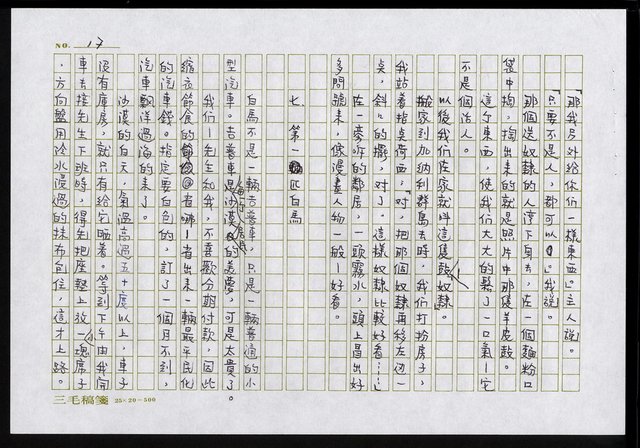 NO. 17
「那我另外給你們一樣東西。」主人說。
「只要不是人，都可以。」我說。
那個從奴隸的人彎下身去，在一個麵粉口
袋中掏，掏出來的就是照片中那隻羊皮鼓。
這个東西，使我們大大的鬆了一口氣－它
不是個活人。
以後我們在家就叫這隻鼓「奴隸」。
搬家到加納利群島去時，我們打扮房子，
我站着指桌荷西，「對，把那個奴隸再移左边一
點，斜斜的擺，對了。這樣奴隸比較好看……」
在一旁听的鄰居，一頭霧水，頭上冒出好
多問號來，像漫畫人物一般－好看。
七、第一匹白馬
白馬不是一輛吉普車，只是一輛普通的小
型汽車。吉普車是沙漠居民的美夢，可是太貴了。
我們－先生和我，不喜歡分期付款，因此
縮衣節食的省哪－省出來一輛最平民化
的汽車錢。指定要白色的，訂了一個月不到，
汽車飄洋過海的來了。
沙漠的白天，氣溫高過五十度以上，車子
沒有庫房，就只有給它晒著。等到下午由我開
車去接先生下班時，得先把座墊上放一小塊席子
，方向盤用冷水浸過的抹布包住，這才上路。
三毛稿箋 25×20=500